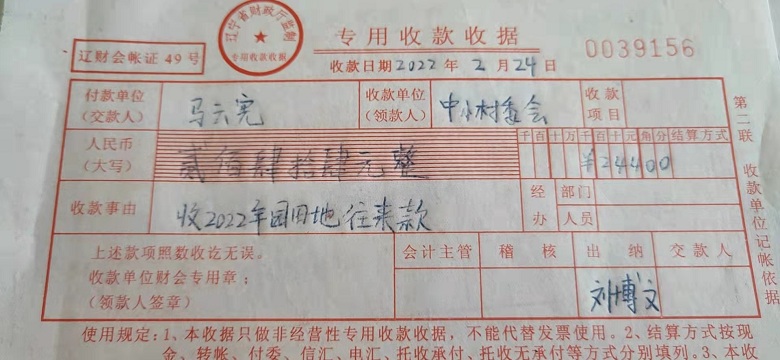 辽宁省财政厅监制
专用收款收据
专用收款收据
0039156
辽财会帐证49号
收款日期2022年2月24日
付款单位
(交款人)
马云宪
收款单位
(领款人)
中小村委会
收款
项目
人民币
(大写)
贰佰肆拾肆元整
千百十万千百十元角分
结算方式
¥24400
收款事由
收2022年园田地往来款
经办
部门
人员
上述款项照数收讫无误。
收款单位财会专用章:
(领款人签章)
会计主管
稽核
出纳
交款人
刘博文
第二联 收款单位记帐依据
使用规定:1、本收据只做非经营性专用收款收据,不能代替发票使用。2、结算方式按现
金、转帐、付委、信汇、电汇、托收承付、托收无承付等方式分别填列。3、本收